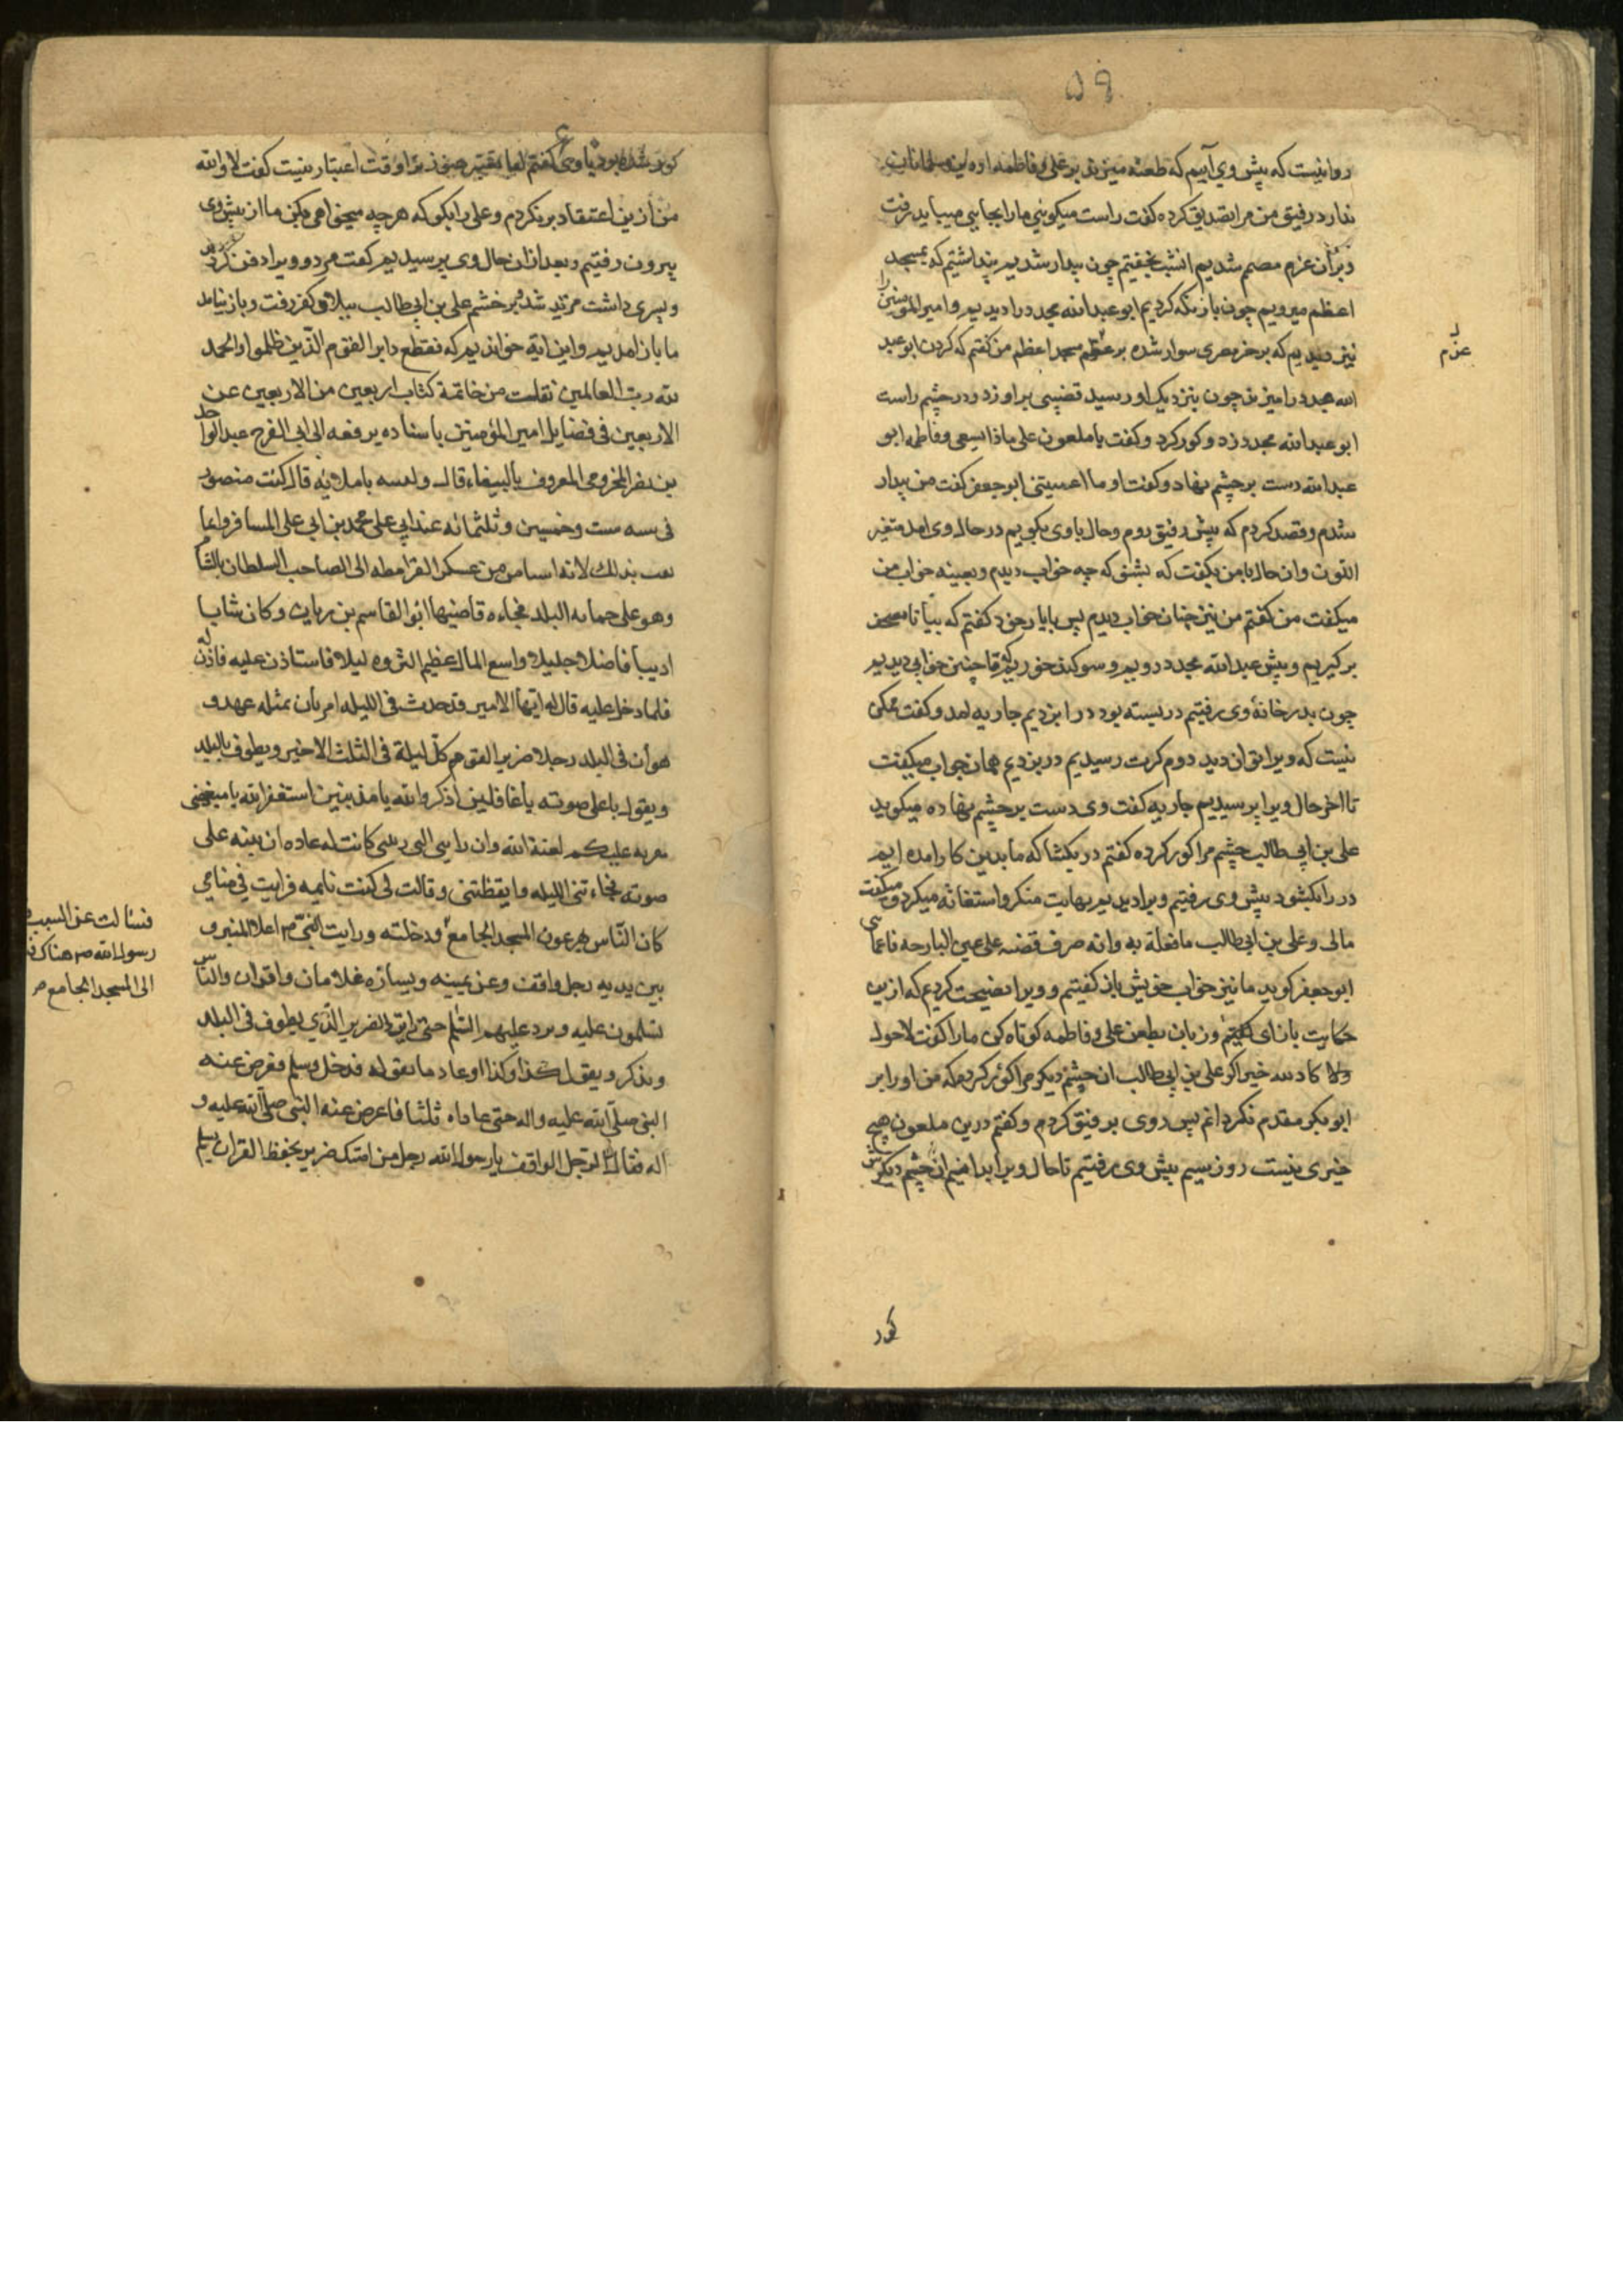 ۵۹
روا نیست که پیش وی آییم که طعنه میزند بر علی و فاطمه و این مسلمانان
ندارد رفیق من مرا تصدیق کرده گفت راست میگویی ما را بجایی میباید رفت
و بر آن عزم مصمم شدیم انشب بخفتیم چون بیدار شدیم پنداشتیم که بمسجد
اعظم میرویم چون باز نگه کردیم ابو عبدالله مجدد را دیدیم و امیر المومنین را
نیز دیدیم که بر خر مصری سوار شده بر عزم مسجد اعظم من گفتم که کردن ابو عبد
عزم
الله مجدد را میزند چون بنزدیک او رسید قضیبی بر او زد و در چشم راست
ابو عبدالله مجدد زد و کور کرد و گفت یا ملعون علی ماذا تسعی و فاطمه ابو
عبدالله دست بر چشم نهاد و گفت اوه اعمیتنی ابو جعفر گفت من بیدار
شدم و قصد کردم که پیش رفیق روم و حال با وی بگویم در حال وی امد متغیر
اللون وان حال با من بگفت که بشنو که چه خواب دیدم و بعینه خواب من
میگفت من گفتم من نیز چنان خواب دیدم پس با یار خود گفتم که بیا تا مصحف
بر گیریم و پیش عبدالله مجدد رویم و سوگند خوریم که ما چنین خوابی دیدیم
چون بدر خانه وی رفتیم در بسته بود در را بزدیم جاریه امد و گفت ممکن
نیست که ویرا توان دید دوم کرت رسیدیم در بزدیم همان جواب میگفت
تا اخر حال ویرا پرسیدیم جاریه گفت وی دست بر چشم نهاده میگوید
علی بن ابی طالب چشم مرا کور کرده گفتم در بگشا که ما بدین کار امده ایم
در را بگشود پیش وی رفتیم ویرا دیدیم بهایت منکر و استغاثه میکرد و میگفت
مالی و علی بن ابی طالب ما فعلة به وانه صرف قضبه علی عینی البارحه فاعمانی
ابو جعفر گوید ما نیز خواب خویش باز گفتیم و ویرا نصیحت کردیم که ازین
حکایت باز ای گفتیم و زبان بطعن علی و فاطمه کوتاه کن ما را گفت لاحول
ولا کاد الله خیر اگر علی بن ابی طالب ان چشم دیگر مرا کور کرد که من او را بر
ابو بکر مقدم نگردانم پس روی بر فیق کردم و گفتم درین ملعون هیچ
خیری نیست روز سیم پیش وی رفتیم تا حال ویرا بدانیم ان چشم دیگرش
کور
کور شده بود با وی گفتم اما یعتبر هنوز ترا وقت اعتبار نیست گفت لا والله
من ازین اعتقاد بر نگردم و علی را بگو که هر چه میخواهی بکن ما از پیش وی
بیرون رفتیم و بعد ازان حال وی پرسیدیم گفت مرد و ویرا دفن کردند
و پسری داشت مرتد شد بر خشم علی بن ابی طالب ببلاد کفر رفت و باز نیامد
ما باز امدیم و این ایة خواندیم که فقطع دابر القوم الذین ظلموا والحمد
لله رب العالمین نقلت من خاتمة کتاب اربعین من الاربعین عن
الاربعین فی فضایل امیر المؤمنین باسناده یرفعه الی ابی الفرج عبد الواحد
بن نصر المخزومی المعروف بالببغاء قال باملائه قال کنت منصور
فی سنه ست وخمسین وثلثمائه عند ابی علی محمد بن ابی علی المسافر وانما
بذلک لانه من عسکر القرامطه الی الصاحب السلطان بالشام
وهو علی حمایه البلد فجاءه قاضیها ابو القاسم بن ریان وکان شابا
ادیبا فاضلا جلیلا واسع المال عظیم الثروه لیلا فاستاذن علیه فاذن له
فلما دخل علیه قال له ایها الامیر قد حدث فی اللیله امر بان بمثله عهد و
هو أن فی البلد رجلا ضریرا یقوم کل لیلة فی الثلث الاخیر ویطوف بالبلد
ویقول باعلی صوته یا غافلین اذکروا الله یا مذنبین استغفر الله یا مبغضی
معویه علیکم لعنة الله وان دایتی التی ربتنی کانت له عاده ان بینه علی
صوته فجاءتنی اللیله وایقظتنی وقالت لی کنت نایمه فرایت فی منامی
کان الناس یهرعون المسجد الجامع ودخلته ورایت النبی ص اعلا المنبر و
فسئالت عن السبب
رسول الله ص هناک
الی المسجد الجامع ص
بین یدیه رجل واقف وعن یمینه ویساره غلامان واقفان والناس
یسلمون علیه ویرد علیهم السلم حتی رایت الضریر الذی یطوف فی البلد
ویذکر ویقول کذا وکذا اوعاد ما یقوله فدخل وسلم فعرض عنه
النبی صلی الله علیه واله حتی عاداه ثلثا فاعرض عنه النبی صلی الله علیه و
اله فقال الرجل الواقف یا رسول الله رجل من امتک ضریر یحفظ القران یسلم